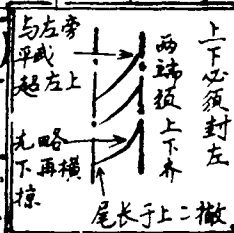 上下必须封左
两端须上下齐
与左旁
平或
起左上
先略
下再横
掠
尾长于上二撇